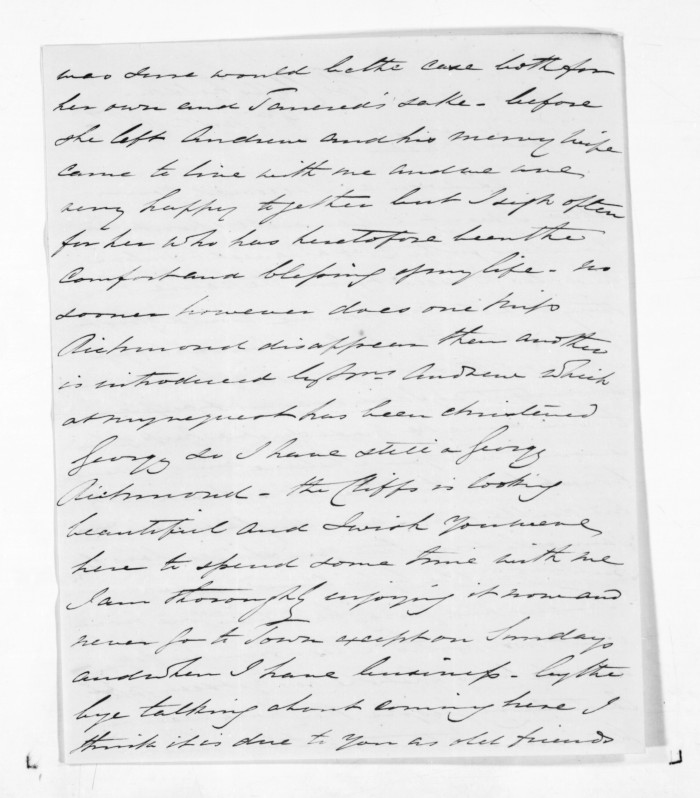 was sure would be the case both for
her own and Tancred's sake - before
she left Andrew and his merry wife
came to live with me and we are
very happy together but I sigh often
for her who has heretofore been the
comfort and blessing of my life - no
sooner however does one Miss
Richmond disappear than another
is introduced by Mrs Andrew which
at my request has been christened
Georgy so I have still a Georgy
Richmond - the Cliffs is looking
beautiful and I wish you were
here to spend some time with me
I am thoroughly enjoying it now and
never go to Town except on Sundays
and when I have business - by the
bye talking about coming here I
think it is due to You as old friends